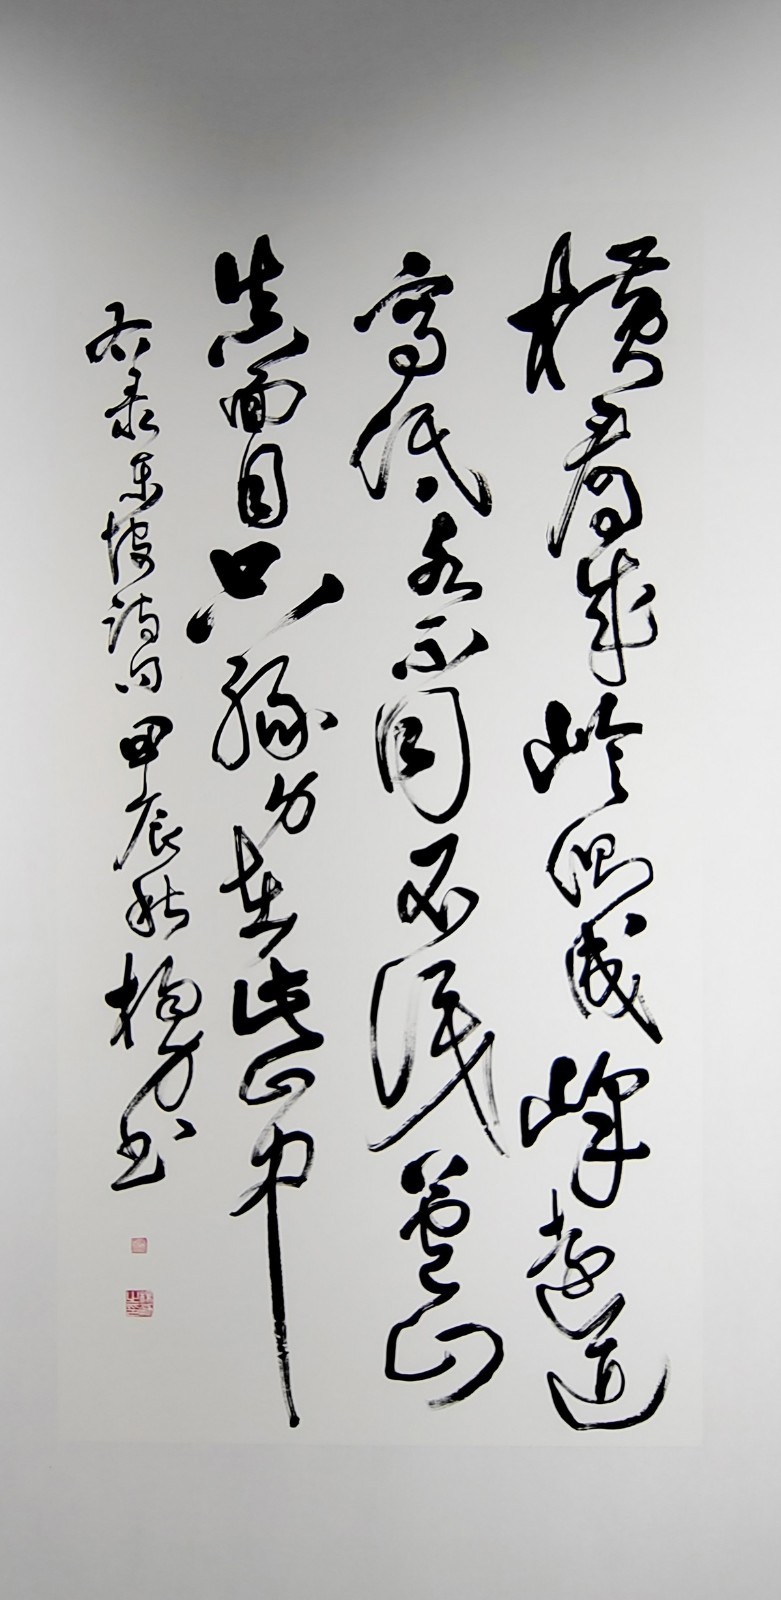 横看成岭侧成峰远近
高低各不同不识庐山
真面目只缘身在此山中
右录东坡诗句甲辰秋书